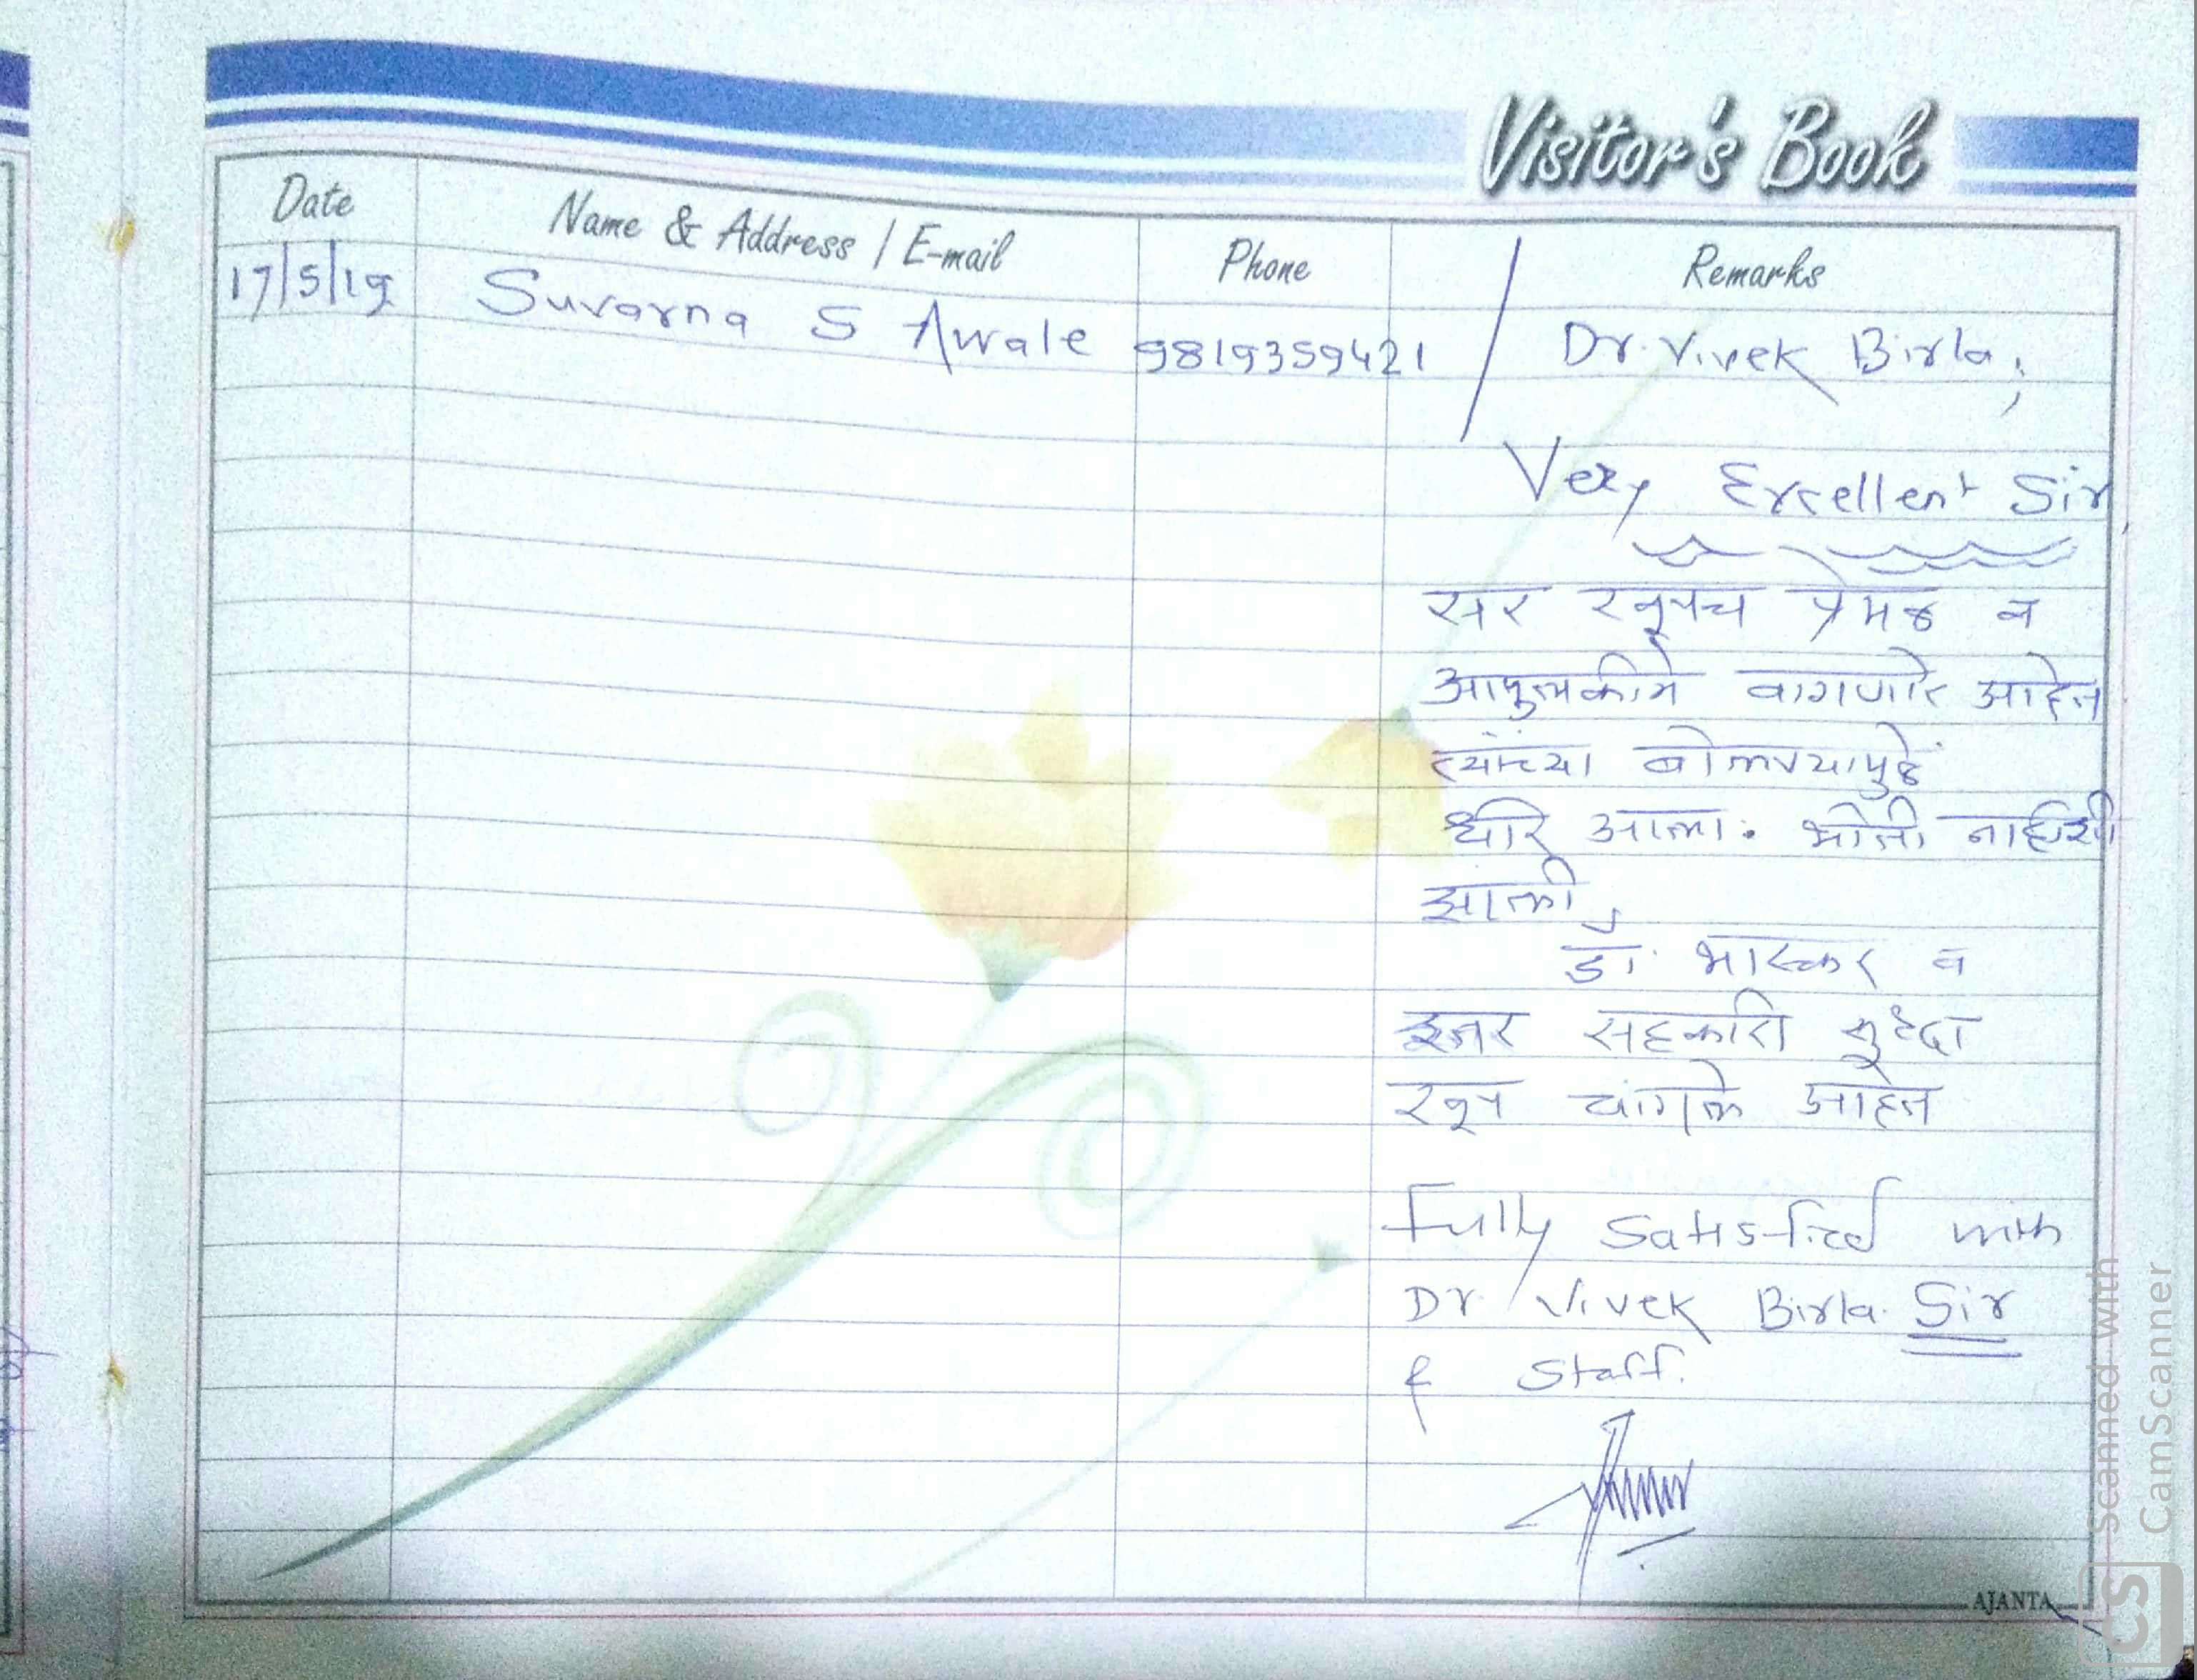 Visitor's Book
Date Name & Address / E-mail Phone Remarks
17/5/19 Suvarna S Awale 9819359421 / Dr. Vivek Birla,
Very Excellent Sir,
सर खूपच प्रेमळ व
आपुलकीने वागणारे आहेत
त्यांच्या बोलण्यापुढे
धीर आला. भीती नाहीशी
झाली,
डॉ. भास्कर व
इतर सहकारी सुध्दा
खूप चांगले आहेत
Fully Satisfied with
Dr. Vivek Birla Sir
& Staff.
AJANTA
Scanned with
CamScanner
CS